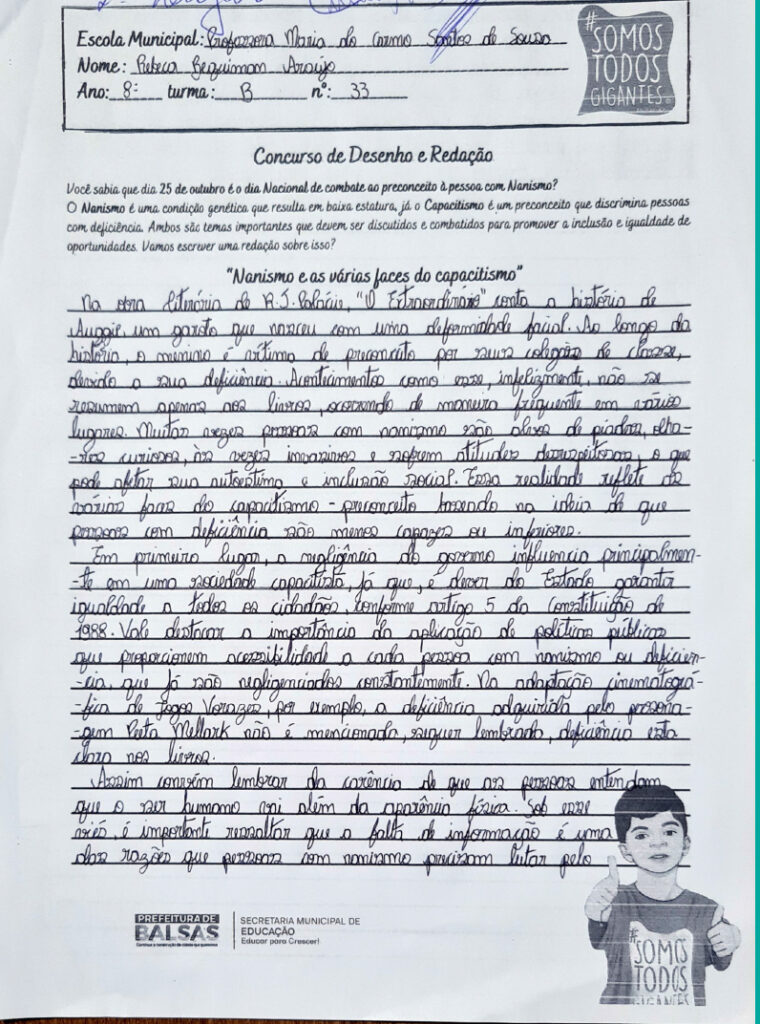 Escola Municipal: Professora Maria do Carmo Santos de Souza
Nome: Rebeca Bequiman Araújo
Ano: 8º turma: B nº: 33
#SOMOS
TODOS
GIGANTES
Concurso de Desenho e Redação
Você sabia que dia 25 de outubro é o dia Nacional de combate ao preconceito à pessoa com Nanismo?
O Nanismo é uma condição genética que resulta em baixa estatura, já o Capacitismo é um preconceito que discrimina pessoas
com deficiência. Ambos são temas importantes que devem ser discutidos e combatidos para promover a inclusão e igualdade de
oportunidades. Vamos escrever uma redação sobre isso?
"Nanismo e as várias faces do capacitismo"
Na obra literária de R.J. Palácio, "O Extraordinário" conta a história de
Auggie um garoto que nasceu com uma deformidade facial. Ao longo da
história, o menino é vítima de preconceito por seus colegas de classe,
devido a sua deficiência. Acontecimentos como esse, infelizmente, não se
resumem apenas aos livros, ocorrendo de maneira frequente em vários
lugares. Muitas vezes pessoas com nanismo são alvos de piadas, olha-
-res curiosos, às vezes invasivos e sofrem atitudes desrespeitosas, o que
pode afetar sua autoestima e inclusão social. Essa realidade reflete as
várias faces do capacitismo - preconceito baseado na ideia de que
pessoas com deficiência são menos capazes ou inferiores.
Em primeiro lugar, a negligência do governo influencia principalmen-
-te em uma sociedade capacitista, já que, é dever do Estado garantir
igualdade a todos os cidadãos, conforme artigo 5 da Constituição de
1988. Vale destacar a importância da aplicação de políticas públicas
que proporcionem acessibilidade a cada pessoa com nanismo ou deficiên-
-cia, que já são negligenciados constantemente. Na adaptação cinematográ-
-fica de Jogos Vorazes, por exemplo, a deficiência adquirida pelo persona-
-gem Peeta Mellark não é mencionada, sequer lembrada, deficiência esta
clara nos livros.
Assim convém lembrar da carência de que as pessoas entendam
que o ser humano vai além da aparência física. Sob esse
viés, é importante ressaltar que a falta de informação é uma
das razões que pessoas com nanismo precisam lutar pelo
PREFEITURA DE
BALSAS
SECRETARIA MUNICIPAL DE
EDUCAÇÃO
Educar para Crescer!
#SOMOS
TODOS
GIGANTES